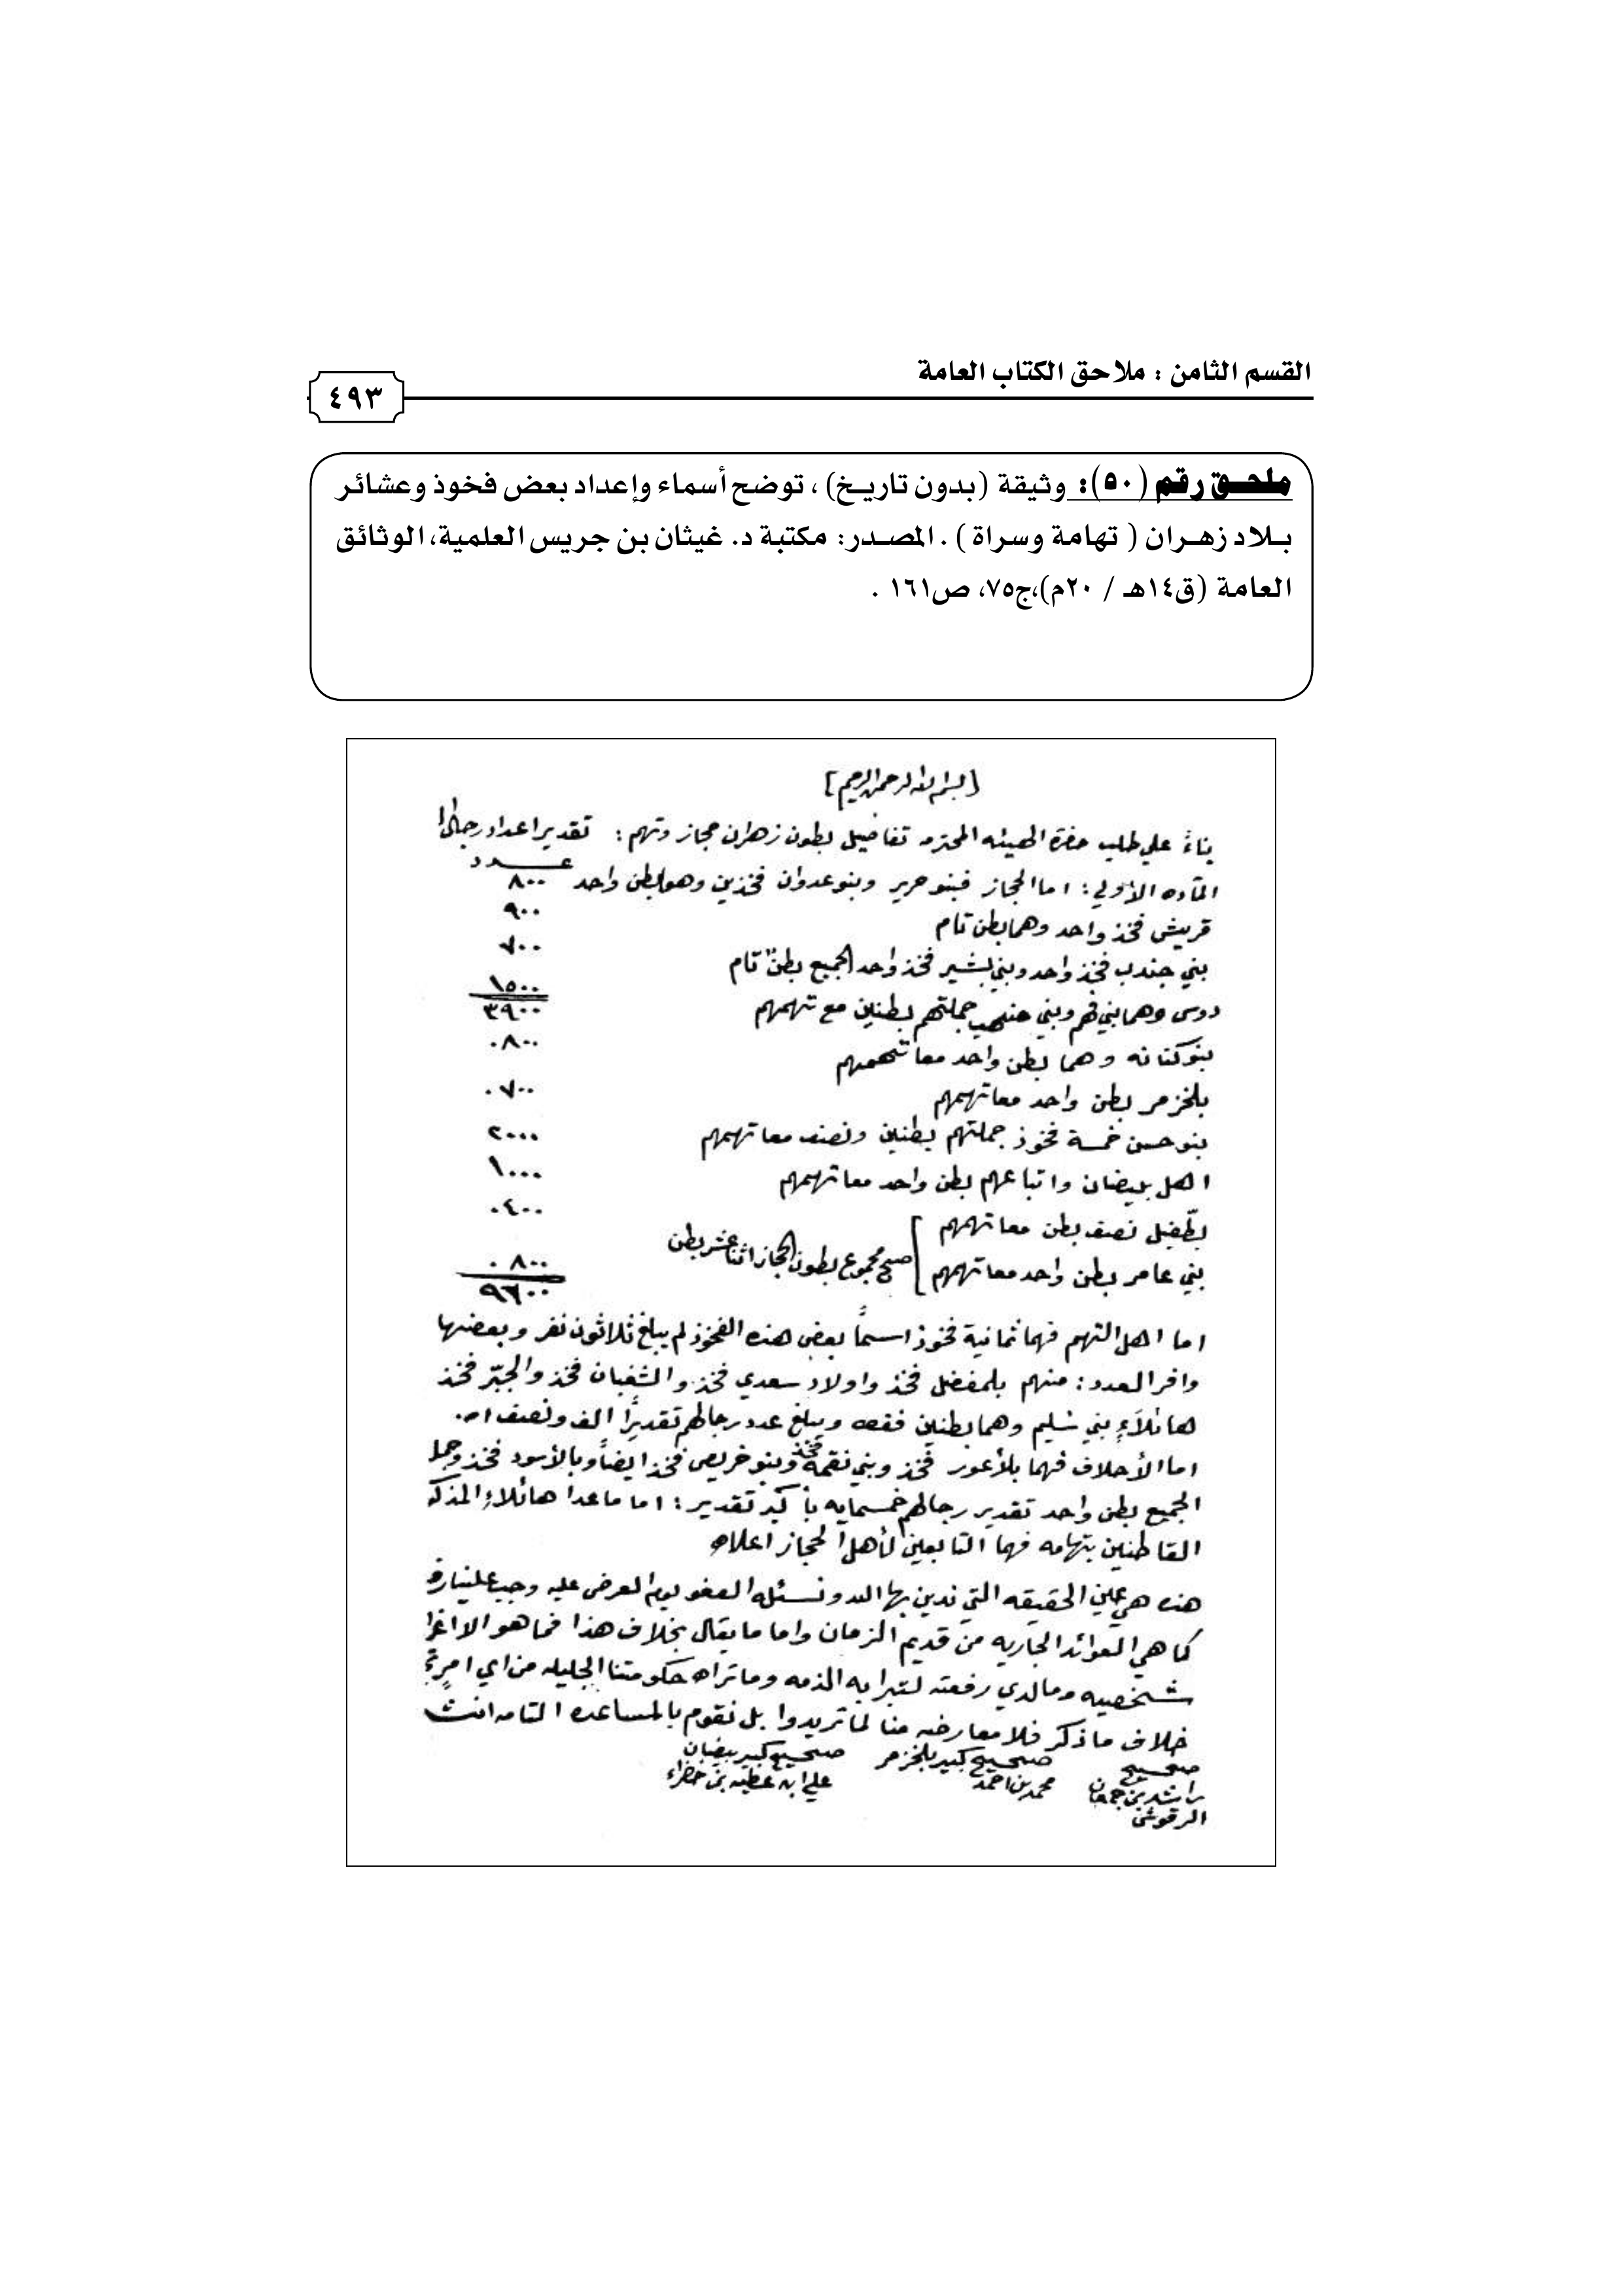 القسم الثامن : ملاحق الكتاب العامة
٤٩٣
ملحـق رقم (٥٠): وثيقة (بدون تاريـخ) ، توضح أسماء وإعداد بعض فخوذ وعشائر
بـلاد زهـران ( تهامة وسراة ) . المصـدر: مكتبة د. غيثان بن جريس العلمية، الوثائق
العامة (ق١٤هـ / ٢٠م)،ج٧٥، ص١٦١ .
[بسم الله الرحمن الرحيم]
بناءً علي طلب حضرة الهيئه المحترمه تفاصيل بطون زهران حجاز وتهم : تقدير اعداد رجالها
عـــدد
المآده الأولي : اما الحجاز فبنو حرير وبنو عدوان فخذين وهما بطن واحد ٨٠٠
قريش فخذ واحد وهما بطن تام ٩٠٠
بني جندب فخذ واحد وبني بشير فخذ واحد الجميع بطنٌ تام ٧٠٠
دوس وهما بني فهم وبني منهب جملتهم بطنين مع تهمهم ١٥٠٠
٣٩٠٠
بنو كنانه وهما بطن واحد معا تهمهم ٠٨٠٠
بلخزمر بطن واحد معا تهمهم ٠٧٠٠
بنو حسن خمسة فخوذ جملتهم بطنين ونصف معا تهمهم ٢٠٠٠
اهل بيضان واتباعهم بطن واحد معا تهمهم ١٠٠٠
بطّفيل نصف بطن معا تهمهم ٠٤٠٠
بني عامر بطن واحد معا تهمهم صح مجموع بطون الحجاز اثنا عشر بطن ٠٨٠٠
٩٦٠٠
اما اهل التهم فهما ثمانية فخوذ اسماً بعض هذه الفخوذ لم يبلغ ثلاثون نفر وبعضها
وافر العدد : منهم بلمفضل فخذ واولاد سعدي فخذ والشغبان فخذ والجبّر فخذ
هائلآء بني سُليم وهما بطنين فقط ويبلغ عدد رجالهم تقديراً الف ونصف اه.
اما الأحلاف فهما بلأعور فخذ وبني نقمه فخذ وبنو خريص فخذ ايضاً وبالأسود فخذ وجملة
الجميع بطن واحد تقدير رجالهم خمسمايه بأكبر تقدير : اما ماعدا هائلاء المذكو
القاطنين بتهامه فهما التابعين لأهل الحجاز اعلاه
هذه هي عين الحقيقه التي ندين بها الله ونسئله العفو يوم العرض عليه وجب علينا
كما هي العوائد الجاريه من قديم الزمان واما ما يقال بخلاف هذا فما هو الا
شخصيه ومالدي رفعته لتبرا به الذمه وماتراه حكومتنا الجليله من اي امر
خلاف ماذكر فلا معارضه منا لما تريدوا بل نقوم بالمساعده التامه
صحيح صحيح كبير بلخزمر صحيح كبير بيضان
راشد بن جمعان محمد بن احمد علي ابن عطيه بن خضراء
الرقوش